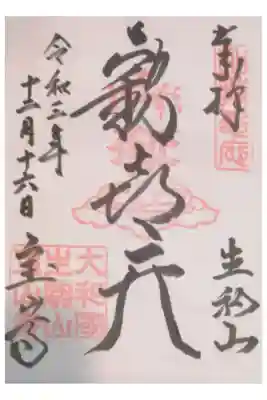 奉拝
生駒山
歡喜天
令和三年
十二月十六日
宝山寺
大和國
生駒山